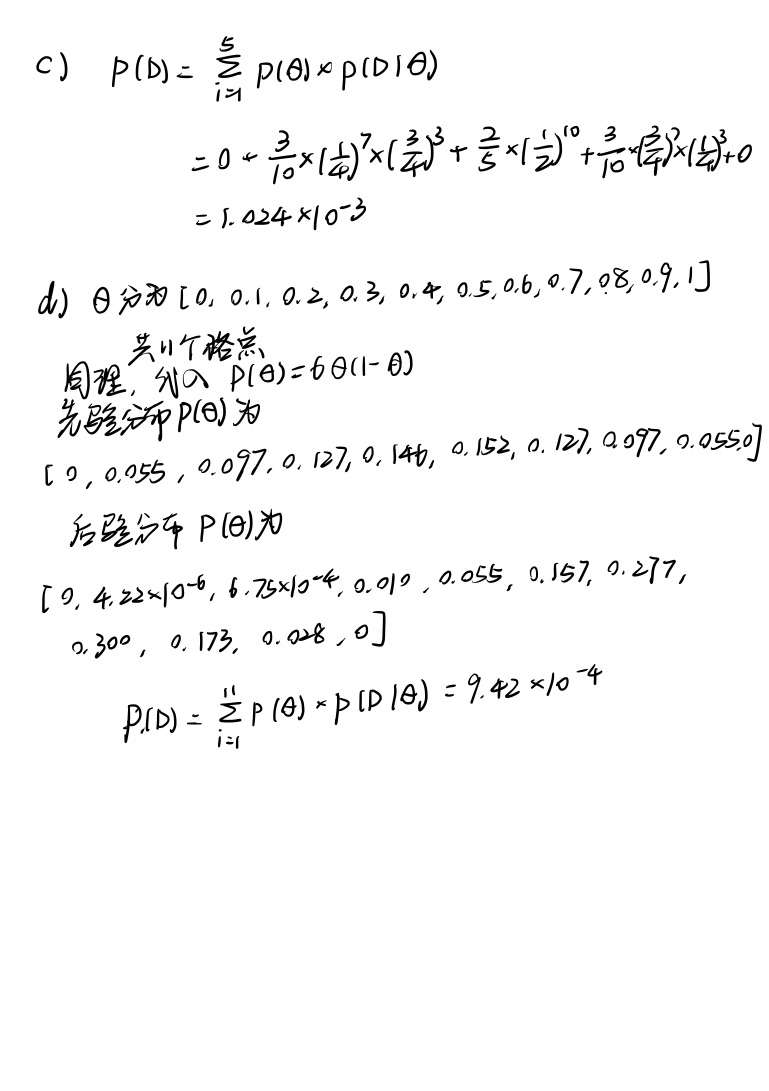 c) P(D) = \sum_{i=1}^{5} P(θ) × P(D|θ)
= 0 + \frac{3}{10}×(\frac{1}{4})^7×(\frac{3}{4})^3 + \frac{2}{5}×(\frac{1}{2})^{10} + \frac{3}{10}×(\frac{3}{4})^7×(\frac{1}{4})^3+0
= 1.024×10^{-3}
d) θ分为[0, 0.1, 0.2, 0.3, 0.4, 0.5, 0.6, 0.7, 0.8, 0.9, 1]
共11个格点
同理, 代入 P(θ)=6θ(1-θ)
先验分布P(θ)为
[0, 0.055, 0.097, 0.127, 0.146, 0.152, 0.127, 0.097, 0.055,0]
后验分布 P(θ)为
[0, 4.22×10^{-6}, 6.75×10^{-4}, 0.010, 0.055, 0.157, 0.277,
0.300, 0.173, 0.028, 0]
P(D) = \sum_{i=1}^{11} P(θ)×P(D|θ) = 9.42×10^{-4}